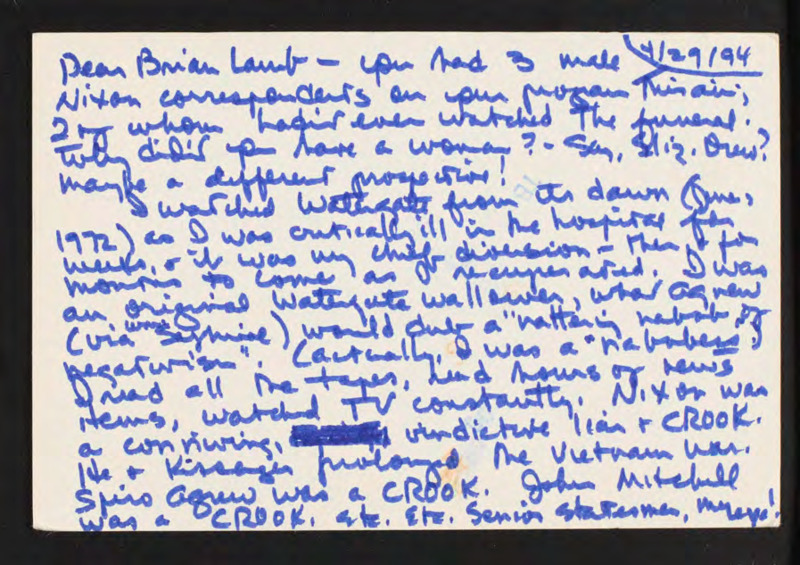 4/29/94
Dear Brian Lamb – you had 3 male
Nixon correspondents on your program this am;
2 of whom hadn't even watched the funeral.
Why didn't you have a woman? - Say, Eliz. Drew?
maybe a different perspective!
I watched Watergate from its dawn (June,
1972) as I was critically ill in the hospital for
weeks, + it was my chief diversion – then, + for
months to come as I recuperated. I was
an original Watergate wallower, what Agnew
(via Safire) would dub a "nattering nabob of
negativism". (Actually, I was a "nabobess".)
I read all the tapes, had hours of news
items, watched TV constantly. Nixon was
a conniving, vindictive liar + CROOK.
He + Kissinger prolonged the Vietnam War.
Spiro Agnew was a CROOK. John Mitchell
was a CROOK. etc. Etc. Senior statesmen, my eye!